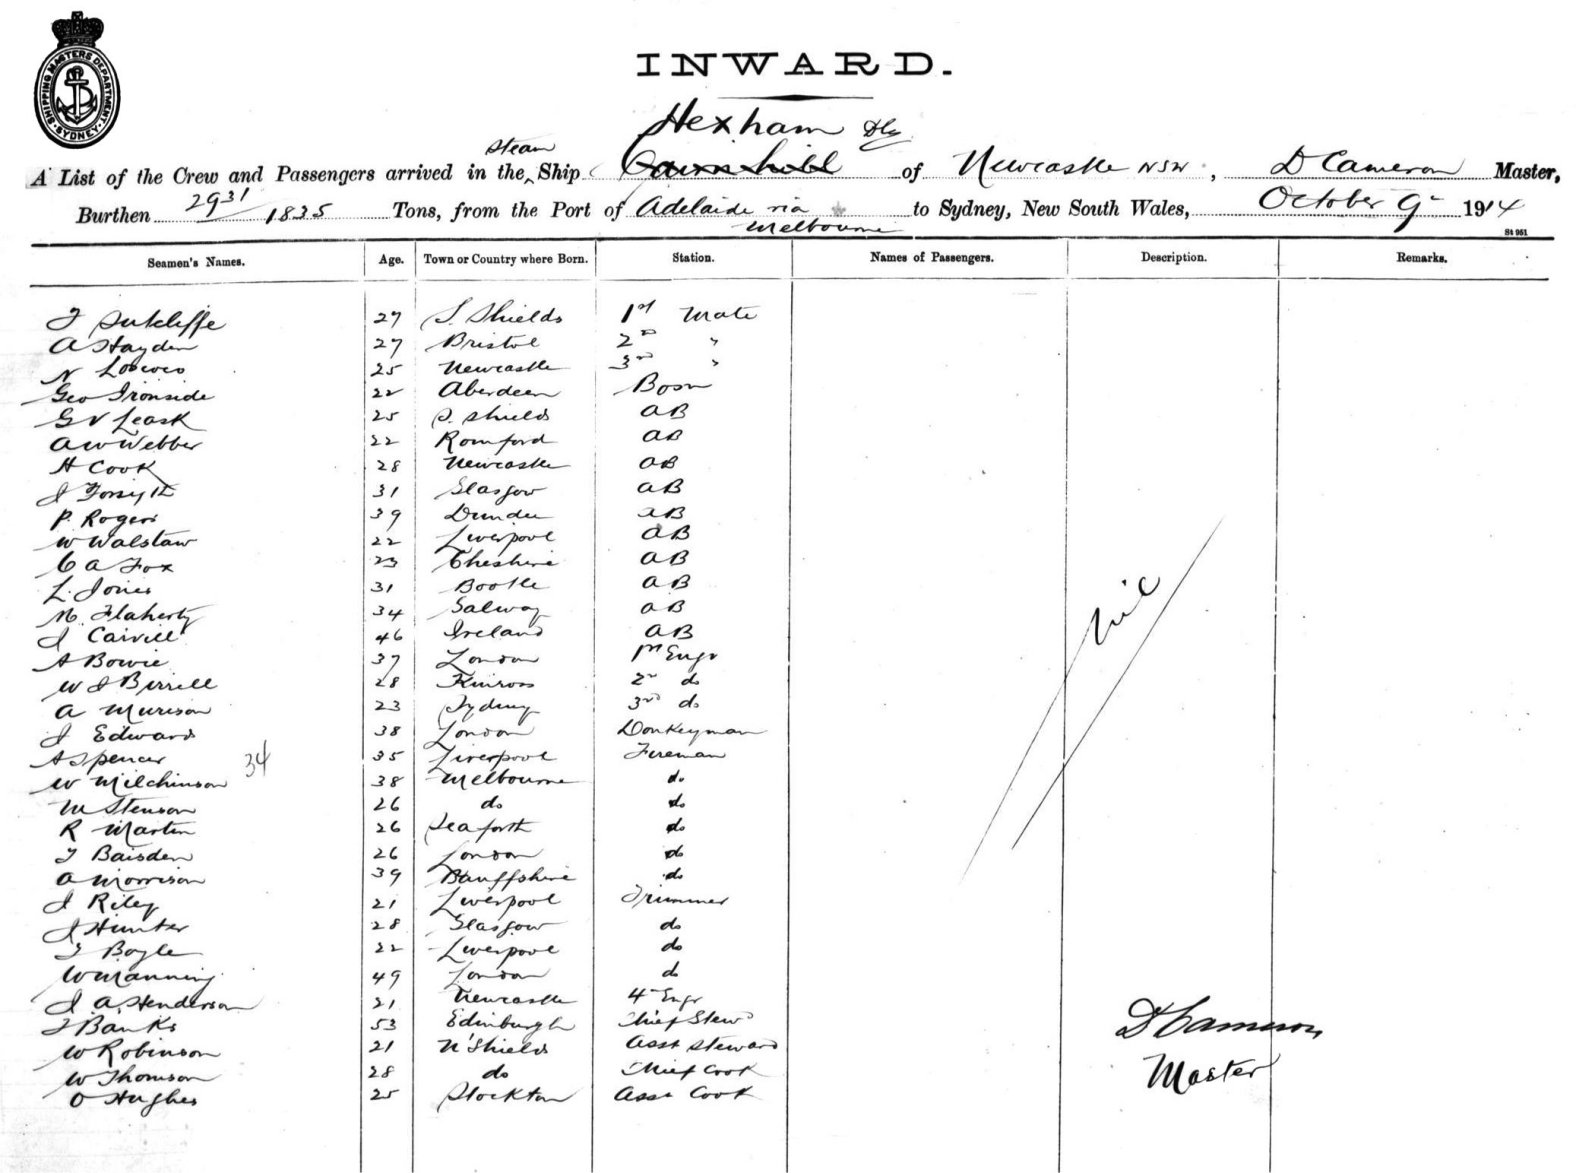 SHIPPING MASTERS DEPARTMENT
SYDNEY
INWARD.
Hexham
steam
A List of the Crew and Passengers arrived in the Ship of Newcastle NSW, D Cameron Master,
Burthen 2931 / 1835 Tons, from the Port of Adelaide via Melbourne to Sydney, New South Wales, October 9th 1914
St 951
Seamen's Names. Age. Town or Country where Born. Station. Names of Passengers. Description. Remarks.
J Sutcliffe 27 S. Shields 1st Mate
A Hayden 27 Bristol 2nd "
N 25 Newcastle 3rd "
Geo Ironside 22 Aberdeen Bosn
G V Leask 25 S. Shields AB
A W Webber 22 Romford AB
H Cook 28 Newcastle AB
J Forsyth 31 Glasgow AB
P. Rogers 39 Dundee AB
W Walstaw 22 Liverpool AB
C A Fox 23 Cheshire AB
L. Jones 31 Bootle AB
M. Flaherty 34 Galway AB
J 46 Ireland AB
A Bowie 37 London 1st Engr
W J Birrell 28 Kinross 2nd do
A Murison 23 Sydney 3rd do
J Edwards 38 London Donkeyman
A Spencer 35 Liverpool Fireman
34
W Milchinson 38 Melbourne do
M Stenson 26 do do
R Martin 26 Seaforth do
J Baisden 26 London do
A Morrison 39 Banffshire do
J Riley 21 Liverpool Trimmer
J Hunter 28 Glasgow do
J Boyle 22 Liverpool do
W Manning 49 London do
J A Henderson 21 Newcastle 4th Engr
J Banks 53 Edinburgh Chief Stewd
W Robinson 21 N' Shields Asst Steward
W Thomson 28 do Chief Cook
O Hughes 25 Stockton Asst Cook
Nil
D Cameron
Master